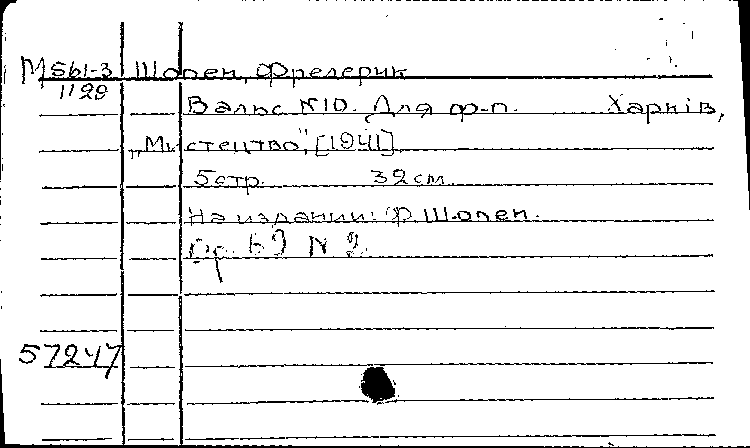 М561-3 Шопен, Фредерик
1129
Вальс №10. Для ф-п. Харкiв,
„Мистецтво", [1941]
5 стр. 32 см.
На издании: Ф. Шопен.
Op. 69 N 2.
57247